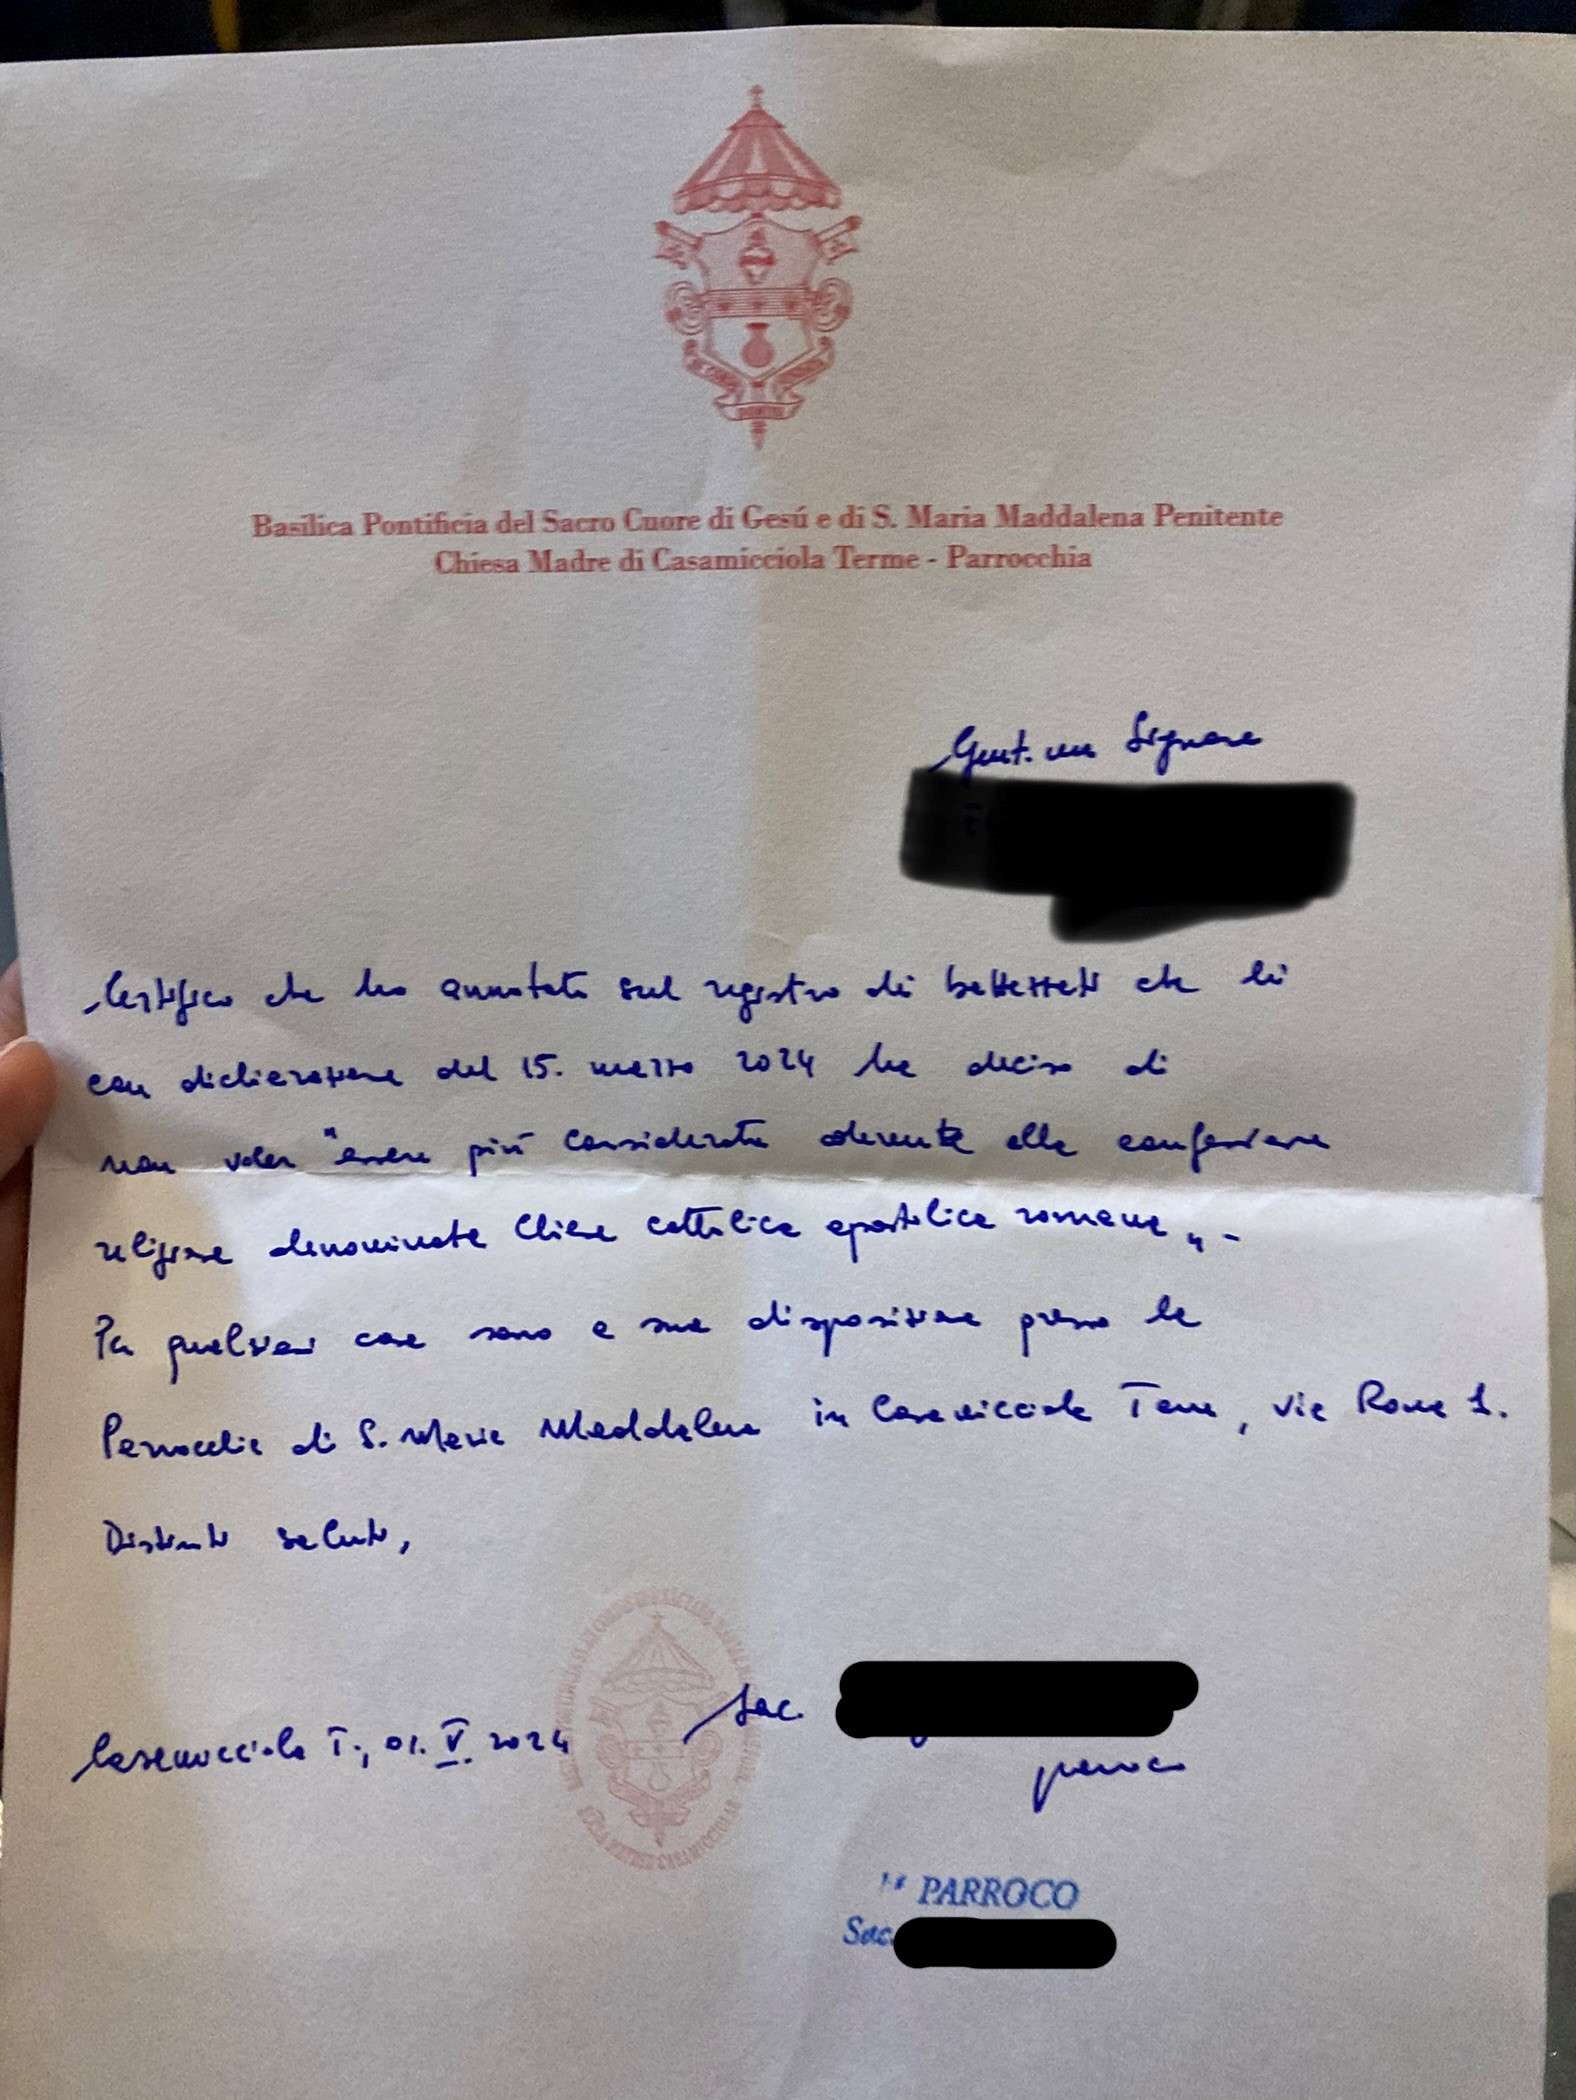 Basilica Pontificia del Sacro Cuore di Gesú e di S. Maria Maddalena Penitente
Chiesa Madre di Casamicciola Terme - Parrocchia
Gent.mo Signore
Certifico che ho annotato sul registro dei battezzati che lei
con dichiarazione del 15. marzo 2024 ha deciso di
non voler "essere più considerato aderente alla confessione
religiosa denominata Chiesa cattolica apostolica romana„.
Per qualsiasi cosa sono a sua disposizione presso la
Parrocchia di S. Maria Maddalena in Casamicciola Terme, via Roma 1.
Distinti saluti,
Casamicciola T., 01. V. 2024
Sac.
parroco
PARROCO
Sac.